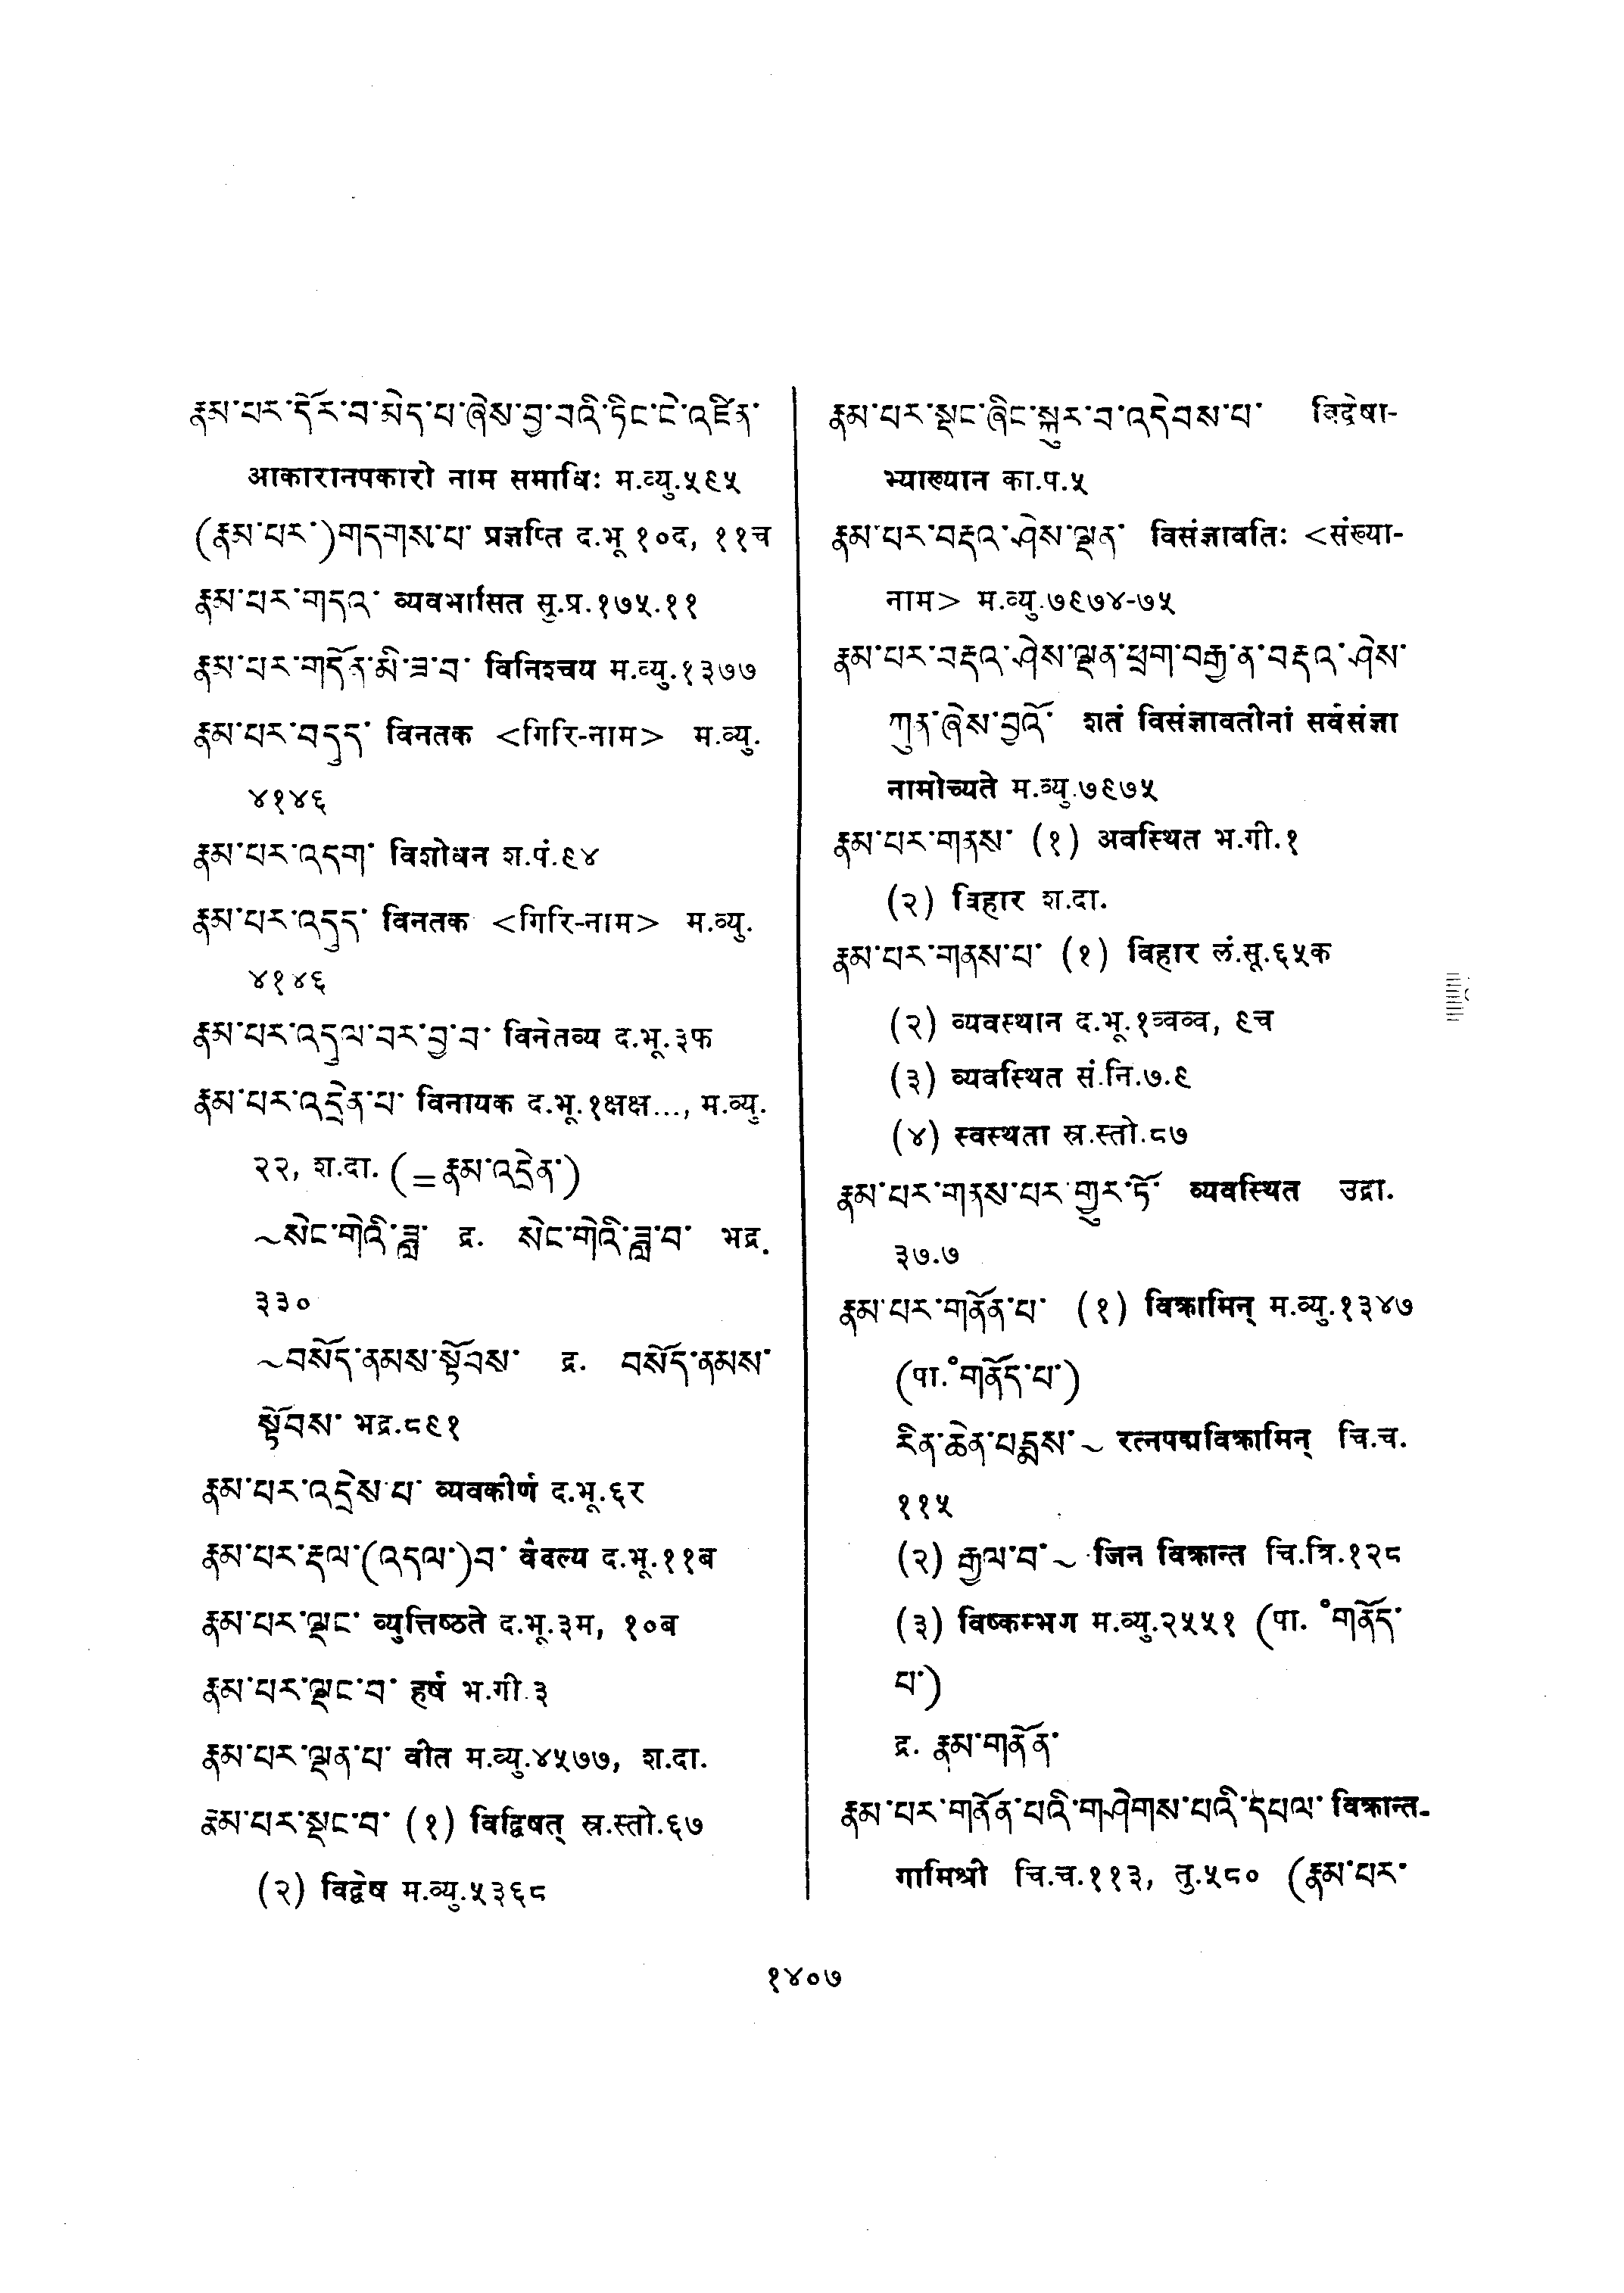 རྣམ་པར་དོར་བ་མེད་པ་ཞེས་བྱ་བའི་ཏིང་ངེ་འཛིན་
आकारानपकारो नाम समाधिः म.व्यु.५९५
(རྣམ་པར་)གདགས་པ་ प्रज्ञप्ति द.भू १०द, ११च
རྣམ་པར་གདའ་ व्यवभासित सु.प्र.१७५.११
རྣམ་པར་གདོན་མི་ཟ་བ་ विनिश्चय म.व्यु.१३७७
རྣམ་པར་བདུད་ विनतक <गिरि-नाम> म.व्यु.
४१४६
རྣམ་པར་འདག་ विशोधन श.पं.९४
རྣམ་པར་འདུད་ विनतक <गिरि-नाम> म.व्यु.
४१४६
རྣམ་པར་འདུལ་བར་བྱ་བ་ विनेतव्य द.भू.३फ
རྣམ་པར་འདྲེན་པ་ विनायक द.भू.१क्षक्ष..., म.व्यु.
२२, श.दा. (=རྣམ་འདྲེན་)
~སེང་གེའི་ཟླ་ द्र. སེང་གེའི་ཟླ་བ་ भद्र.
३३०
~བསོད་ནམས་སྟོབས་ द्र. བསོད་ནམས་
སྟོབས་ भद्र.८९१
རྣམ་པར་འདྲེས་པ་ व्यवकीर्ण द.भू.६र
རྣམ་པར་རྡལ་(འདལ་)བ་ वैदल्य द.भू.११ब
རྣམ་པར་ལྡང་ व्युत्तिष्ठते द.भू.३म, १०ब
རྣམ་པར་ལྡང་བ་ हर्ष भ.गी.३
རྣམ་པར་ལྡན་པ་ वीत म.व्यु.४५७७, श.दा.
རྣམ་པར་སྡང་བ་ (१) विद्विषत् स्र.स्तो.६७
(२) विद्वेष म.व्यु.५३६८
རྣམ་པར་སྡང་ཞིང་སྐུར་བ་འདེབས་པ་ विद्वेषा-
भ्याख्यान का.प.५
རྣམ་པར་བརྡའ་ཤེས་ལྡན་ विसंज्ञावतिः <संख्या-
नाम> म.व्यु.७९७४-७५
རྣམ་པར་བརྡའ་ཤེས་ལྡན་ཕྲག་བརྒྱ་ན་བརྡའ་ཤེས་
ཀུན་ཞེས་བྱའོ་ शतं विसंज्ञावतीनां सर्वसंज्ञा
नामोच्यते म.व्यु.७९७५
རྣམ་པར་གནས་ (१) अवस्थित भ.गी.१
(२) विहार श.दा.
རྣམ་པར་གནས་པ་ (१) विहार लं.सू.६५क
(२) व्यवस्थान द.भू.१व्वव्व, ९च
(३) व्यवस्थित सं.नि.७.९
(४) स्वस्थता स्र.स्तो.८७
རྣམ་པར་གནས་པར་གྱུར་ཏོ་ व्यवस्थित उद्रा.
३७.७
རྣམ་པར་གནོན་པ་ (१) विक्रामिन् म.व्यु.१३४७
(पा.°གནོད་པ་)
རིན་ཆེན་པདྨས་~ रत्नपद्मविक्रामिन् चि.च.
११५
(२) རྒྱལ་བ་~ जिन विक्रान्त चि.त्रि.१२८
(३) विष्कम्भग म.व्यु.२५५१ (पा. °གནོད་
པ་)
द्र. རྣམ་གནོན་
རྣམ་པར་གནོན་པའི་གཤེགས་པའི་དཔལ་ विक्रान्त-
गामिश्री चि.च.११३, तु.५८० (རྣམ་པར་
१४०७